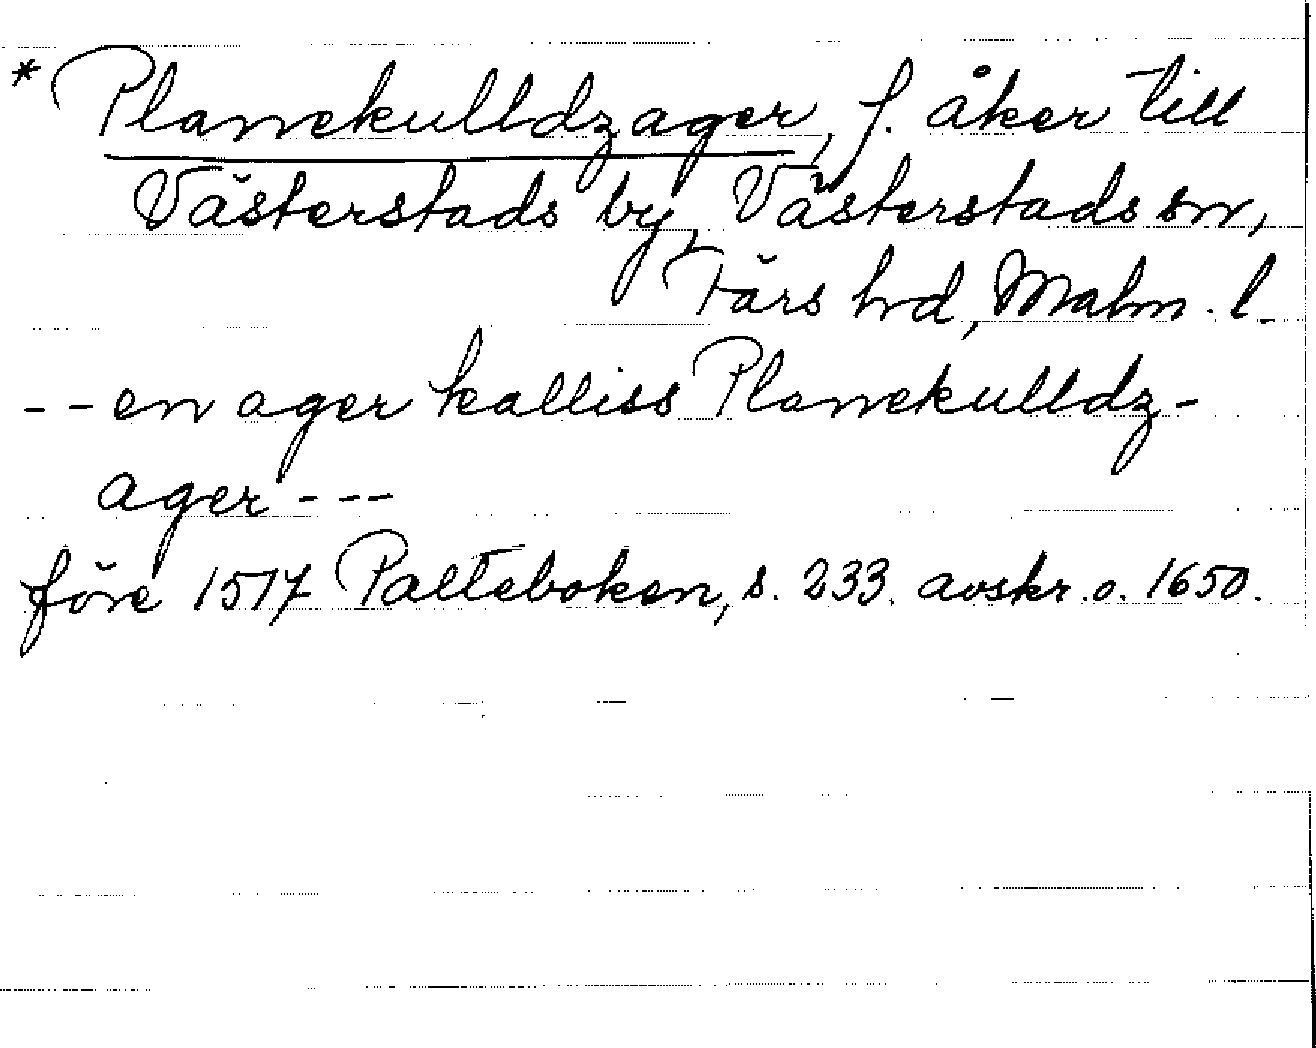 * Planekulldzager, f. åker till
Västerstads by, Västerstads sn,
Färs hd, Malm. l.
-- en ager kalliss Planekulldz-
ager ---
före 1517 Palteboken, s. 233. avskr. o. 1650.